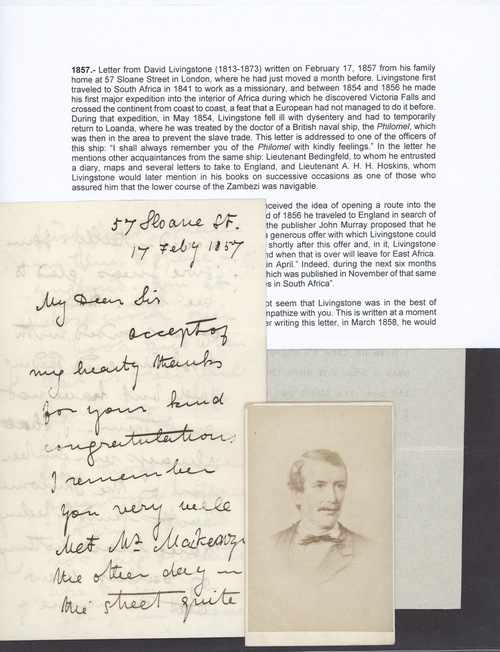 1857.- Letter from David Livingstone (1813-1873) written on February 17, 1857 from his family
home at 57 Sloane Street in London, where he had just moved a month before. Livingstone first
traveled to South Africa in 1841 to work as a missionary, and between 1854 and 1856 he made
his first major expedition into the interior of Africa during which he discovered Victoria Falls and
crossed the continent from coast to coast, a feat that a European had not managed to do it before.
During that expedition, in May 1854, Livingstone fell ill with dysentery and had to temporarily
return to Loanda, where he was treated by the doctor of a British naval ship, the Philomel, which
was then in the area to prevent the slave trade. This letter is addressed to one of the officers of
this ship: “I shall always remember you of the Philomel with kindly feelings.” In the letter he
mentions other acquaintances from the same ship: Lieutenant Bedingfeld, to whom he entrusted
a diary, maps and several letters to take to England, and Lieutenant A. H. H. Hoskins, whom
Livingstone would later mention in his books on successive occasions as one of those who
assured him that the lower course of the Zambezi was navigable.
ceived the idea of opening a route into the
d of 1856 he traveled to England in search of
the publisher John Murray proposed that he
generous offer with which Livingstone could
shortly after this offer and, in it, Livingstone
nd when that is over will leave for East Africa.
in April.” Indeed, during the next six months
hich was published in November of that same
es in South Africa”.
ot seem that Livingstone was in the best of
mpathize with you. This is written at a moment
er writing this letter, in March 1858, he would
57 Sloane St.
17 Feby 1857
My Dear Sir
accept of
my hearty thanks
for your kind
congratulations
I remember
you very well
Met Mr Mackenzy
the other day in
the street quite